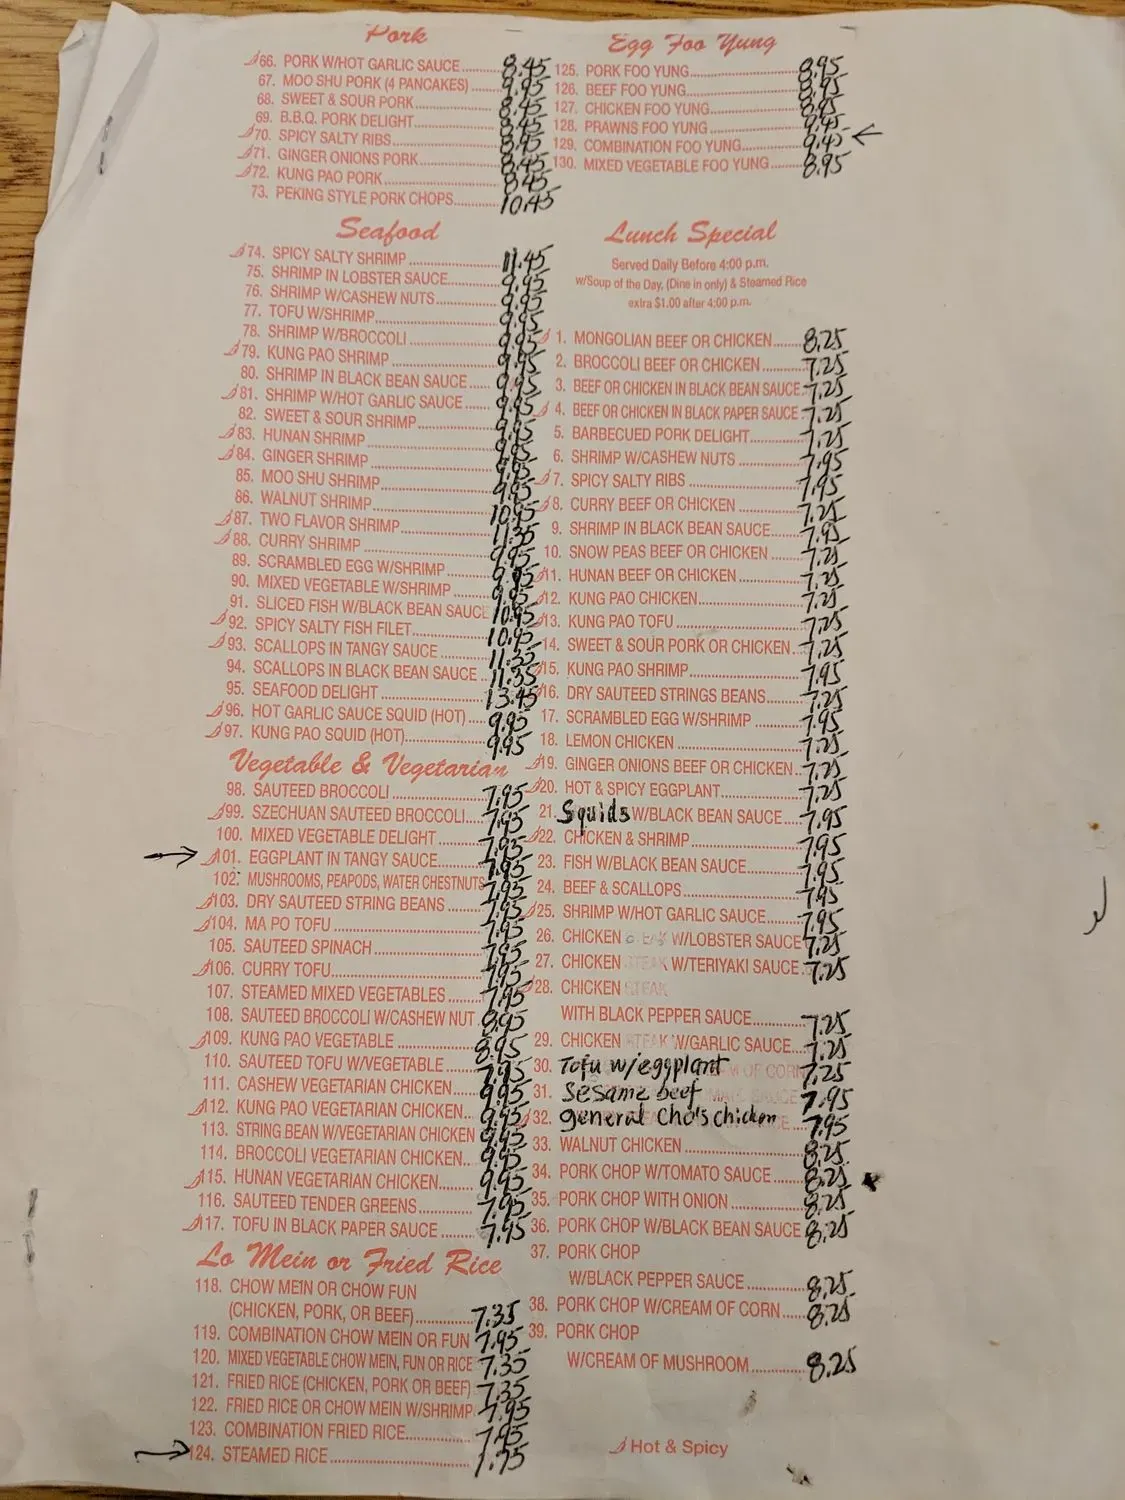 Pork
66. PORK W/HOT GARLIC SAUCE 8.45
67. MOO SHU PORK (4 PANCAKES) 9.95
68. SWEET & SOUR PORK 8.45
69. B.B.Q. PORK DELIGHT 8.45
70. SPICY SALTY RIBS 8.45
71. GINGER ONIONS PORK 8.45
72. KUNG PAO PORK 8.45
73. PEKING STYLE PORK CHOPS 10.45
Seafood
74. SPICY SALTY SHRIMP 11.45
75. SHRIMP IN LOBSTER SAUCE 9.95
76. SHRIMP W/CASHEW NUTS 9.95
77. TOFU W/SHRIMP 9.95
78. SHRIMP W/BROCCOLI 9.95
79. KUNG PAO SHRIMP 9.95
80. SHRIMP IN BLACK BEAN SAUCE 9.95
81. SHRIMP W/HOT GARLIC SAUCE 9.95
82. SWEET & SOUR SHRIMP 9.95
83. HUNAN SHRIMP 9.95
84. GINGER SHRIMP 9.95
85. MOO SHU SHRIMP 9.95
86. WALNUT SHRIMP 10.95
87. TWO FLAVOR SHRIMP 11.35
88. CURRY SHRIMP 9.95
89. SCRAMBLED EGG W/SHRIMP 9.95
90. MIXED VEGETABLE W/SHRIMP 9.95
91. SLICED FISH W/BLACK BEAN SAUCE 10.95
92. SPICY SALTY FISH FILET 10.95
93. SCALLOPS IN TANGY SAUCE 11.35
94. SCALLOPS IN BLACK BEAN SAUCE 11.35
95. SEAFOOD DELIGHT 13.45
96. HOT GARLIC SAUCE SQUID (HOT) 9.95
97. KUNG PAO SQUID (HOT) 9.95
Vegetable & Vegetarian
98. SAUTEED BROCCOLI 7.95
99. SZECHUAN SAUTEED BROCCOLI 7.95
100. MIXED VEGETABLE DELIGHT 7.95
101. EGGPLANT IN TANGY SAUCE 7.95
102. MUSHROOMS, PEAPODS, WATER CHESTNUTS 7.95
103. DRY SAUTEED STRING BEANS 7.95
104. MA PO TOFU 7.95
105. SAUTEED SPINACH 7.95
106. CURRY TOFU 7.95
107. STEAMED MIXED VEGETABLES 7.95
108. SAUTEED BROCCOLI W/CASHEW NUT 8.95
109. KUNG PAO VEGETABLE 8.95
110. SAUTEED TOFU W/VEGETABLE 7.95
111. CASHEW VEGETARIAN CHICKEN 9.95
112. KUNG PAO VEGETARIAN CHICKEN 9.95
113. STRING BEAN W/VEGETARIAN CHICKEN 9.95
114. BROCCOLI VEGETARIAN CHICKEN 9.95
115. HUNAN VEGETARIAN CHICKEN 9.95
116. SAUTEED TENDER GREENS 7.95
117. TOFU IN BLACK PAPER SAUCE 7.95
Lo Mein or Fried Rice
118. CHOW MEIN OR CHOW FUN
(CHICKEN, PORK, OR BEEF) 7.35
119. COMBINATION CHOW MEIN OR FUN 7.95
120. MIXED VEGETABLE CHOW MEIN, FUN OR RICE 7.35
121. FRIED RICE (CHICKEN, PORK OR BEEF) 7.35
122. FRIED RICE OR CHOW MEIN W/SHRIMP 7.95
123. COMBINATION FRIED RICE 7.95
124. STEAMED RICE 1.75
Egg Foo Yung
125. PORK FOO YUNG 8.95
126. BEEF FOO YUNG 8.95
127. CHICKEN FOO YUNG 8.95
128. PRAWNS FOO YUNG 9.45
129. COMBINATION FOO YUNG 9.45
130. MIXED VEGETABLE FOO YUNG 8.95
Lunch Special
Served Daily Before 4:00 p.m.
w/Soup of the Day, (Dine in only) & Steamed Rice
extra $1.00 after 4:00 p.m.
1. MONGOLIAN BEEF OR CHICKEN 8.25
2. BROCCOLI BEEF OR CHICKEN 7.25
3. BEEF OR CHICKEN IN BLACK BEAN SAUCE 7.25
4. BEEF OR CHICKEN IN BLACK PAPER SAUCE 7.25
5. BARBECUED PORK DELIGHT 7.25
6. SHRIMP W/CASHEW NUTS 7.95
7. SPICY SALTY RIBS 7.95
8. CURRY BEEF OR CHICKEN 7.25
9. SHRIMP IN BLACK BEAN SAUCE 7.95
10. SNOW PEAS BEEF OR CHICKEN 7.25
11. HUNAN BEEF OR CHICKEN 7.25
12. KUNG PAO CHICKEN 7.25
13. KUNG PAO TOFU 7.25
14. SWEET & SOUR PORK OR CHICKEN 7.25
15. KUNG PAO SHRIMP 7.95
16. DRY SAUTEED STRINGS BEANS 7.25
17. SCRAMBLED EGG W/SHRIMP 7.95
18. LEMON CHICKEN 7.25
19. GINGER ONIONS BEEF OR CHICKEN 7.25
20. HOT & SPICY EGGPLANT 7.25
21. Squids W/BLACK BEAN SAUCE 7.95
22. CHICKEN & SHRIMP 7.95
23. FISH W/BLACK BEAN SAUCE 7.95
24. BEEF & SCALLOPS 7.95
25. SHRIMP W/HOT GARLIC SAUCE 7.95
26. CHICKEN W/LOBSTER SAUCE 7.25
27. CHICKEN STEAK W/TERIYAKI SAUCE 7.25
28. CHICKEN STEAK
WITH BLACK PEPPER SAUCE 7.25
29. CHICKEN STEAK W/GARLIC SAUCE 7.25
30. Tofu w/eggplant 7.25
31. Sesame beef 7.95
32. general Cho's chicken 7.95
33. WALNUT CHICKEN 8.25
34. PORK CHOP W/TOMATO SAUCE 8.25
35. PORK CHOP WITH ONION 8.25
36. PORK CHOP W/BLACK BEAN SAUCE 8.25
37. PORK CHOP
W/BLACK PEPPER SAUCE 8.25
38. PORK CHOP W/CREAM OF CORN 8.25
39. PORK CHOP
W/CREAM OF MUSHROOM 8.25
Hot & Spicy